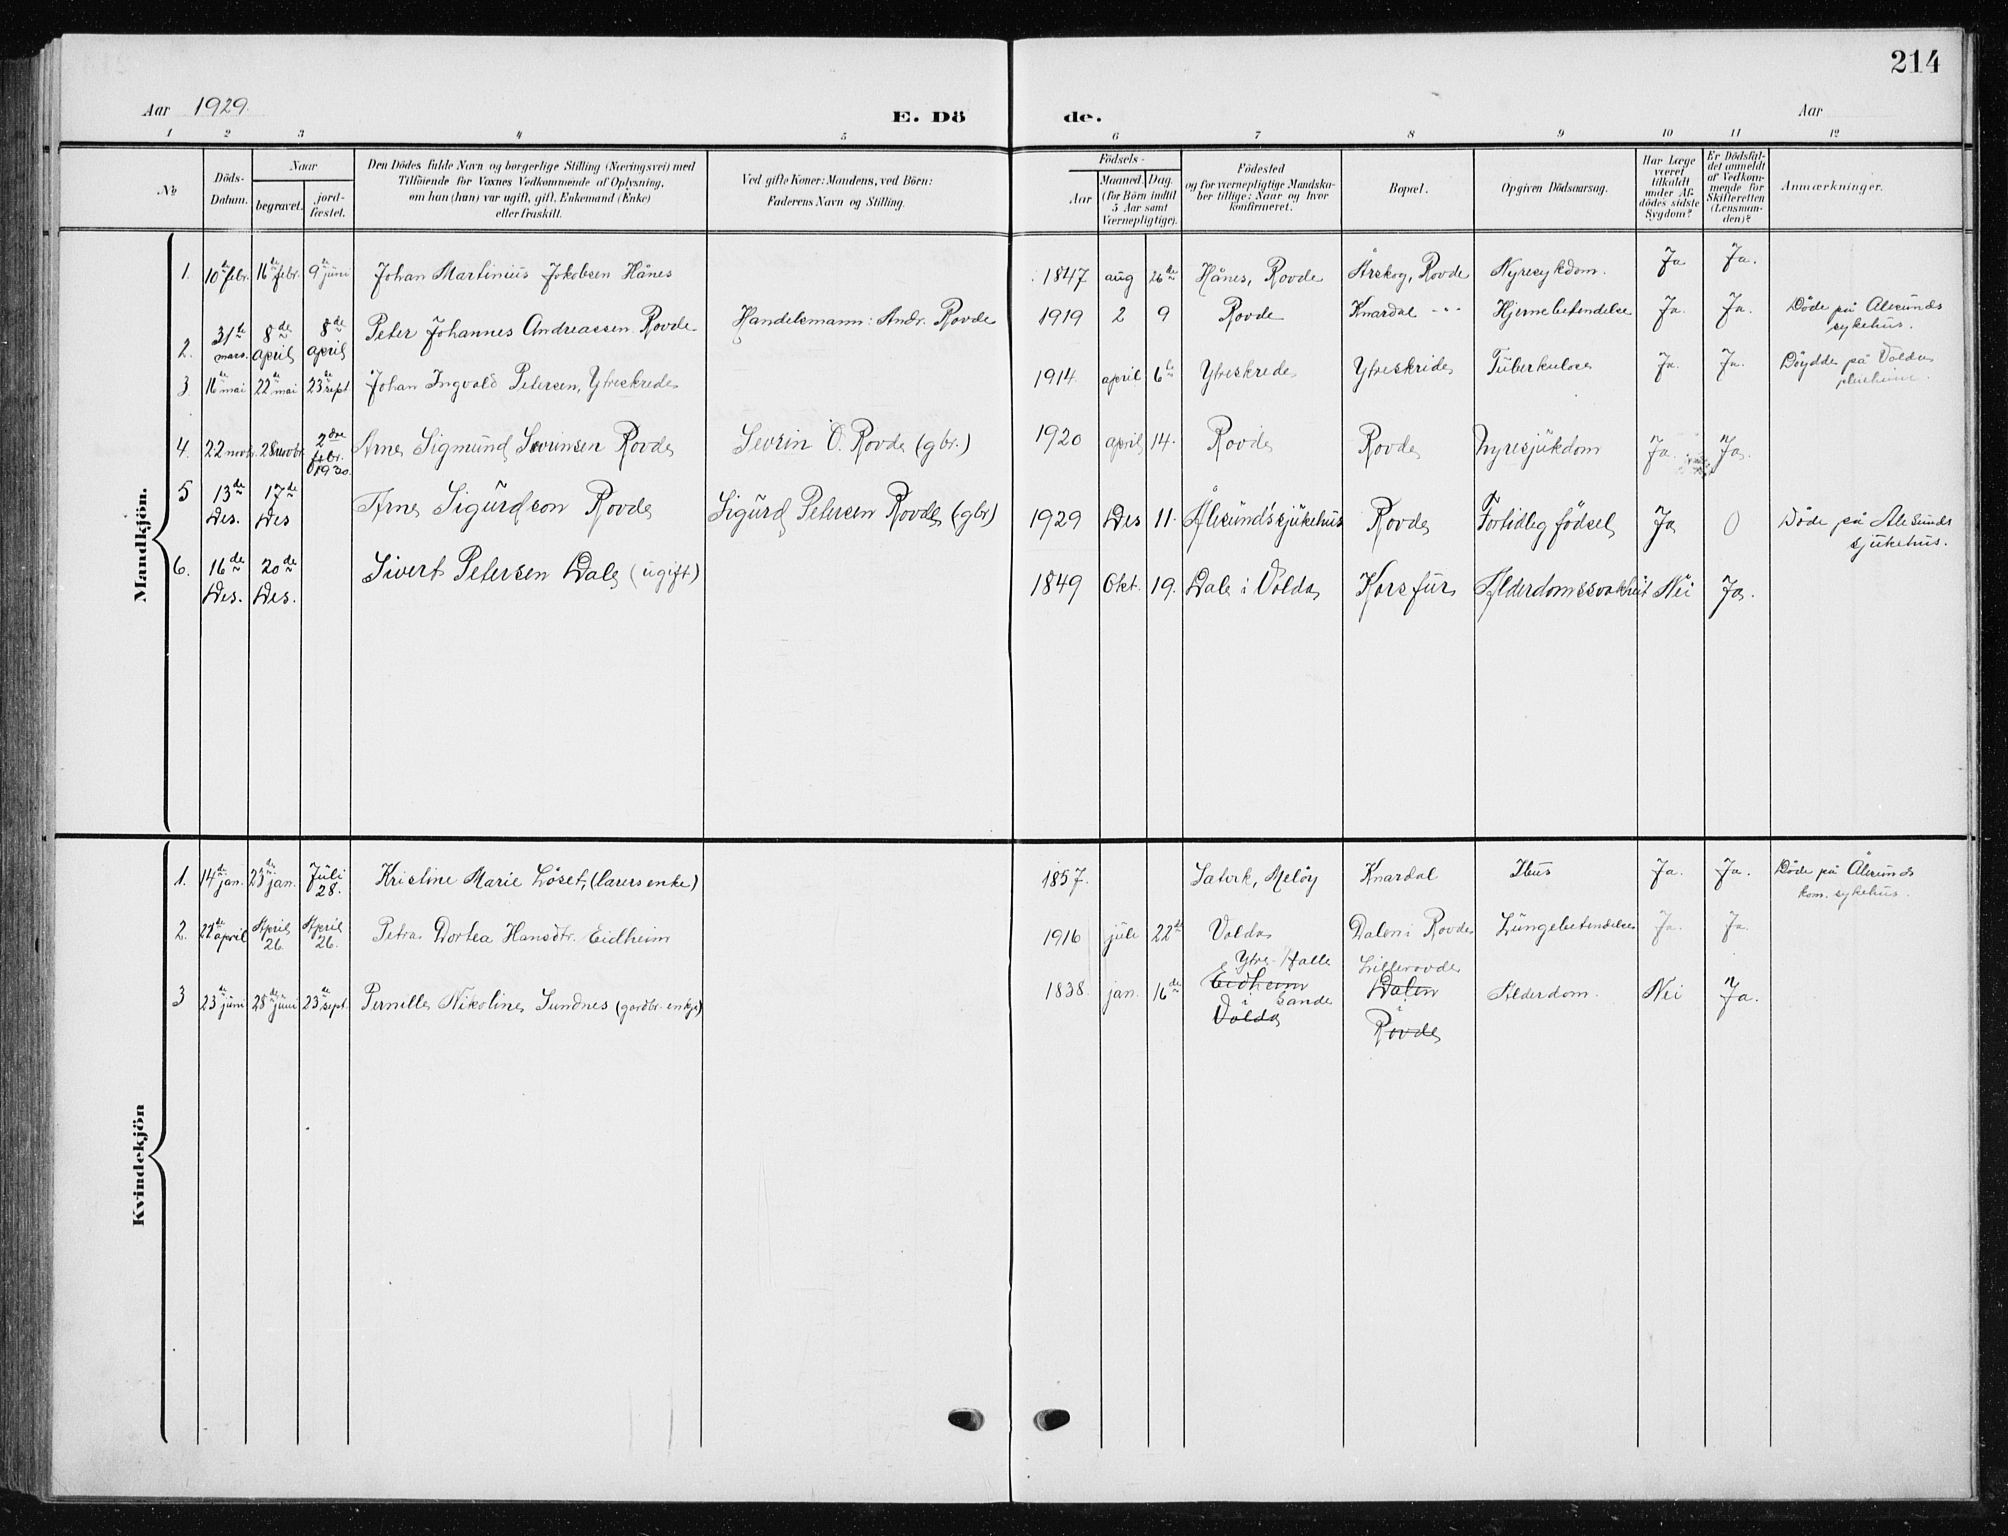 214
Aar 1929.
E. Dö de.
Aar
1 2 3 4 5 6 7 8 9 10 11 12
No
Döds-
Datum.
Naar
begravet.
jord-
fæstet.
Den Dödes fulde Navn og borgerlige Stilling (Næringsvei) med
Tilföiende for Voxnes Vedkommende af Oplysning,
om han (hun) var ugift, gift, Enkemand (Enke)
eller fraskilt.
Ved gifte Koner: Mandens, ved Börn:
Faderens Navn og Stilling.
Födsels-
Aar
Maaned. Dag.
(for Börn indtil
5 Aar samt
Værnepligtige).
Födested
og for værnepligtige Mandska-
ber tillige: Naar og hvor
konfirmeret.
Bopæl.
Opgiven Dödsaarsag.
Har Læge
været
tilkaldt
under Af-
dödes sidste
Sygdom?
Er Dödsfal-
det anmeldt
af Vedkom-
mende for
Skifteretten
(Lensman-
den)?
Anmærkninger.
Mandkjön.
1. 10de febr. 16de febr. 9de juni Johan Martinius Jakobsen Hånes 1847 aug 26de Hånes, Rovde Årskog, Rovde Nyresykdom. Ja Ja.
2. 31te mars. 8de april 8de april Peter Johannes Andreassen Rovde Handelsmann: Andr. Rovde 1919 2 9 Rovde Knardal -"- Hjernebetendelse Ja. Ja. Döde på Ålesunds
sykehus.
3 16de mai 22de mai 23de sept Johan Ingvald Petersen, Ytreskrede 1914 april 6te Ytreskrede Ytreskride Tuberkulose Ja. Ja. Döydde på Volda
4. 22 novbr. 28 novbr. 2dre febr. 1930. Arne Sigmund Severinsen Rovde Severin O. Rovde (gbr.) 1920 april 14. Rovde Rovde Nyresjukdom Ja. Ja.
5 13de Des. 17de Des Arne Sigurdson Rovde Sigurd Petersen Rovde (gbr) 1929 Des 11. Ålesunds sjukehus Rovde Fortidleg födsel Ja 0 Döde på Ålesunds
sjukehus.
6. 16de Des. 20de Des. Sivert Petersen Dale (ugift) 1849 Okt. 19. Dale i Volda Korsfur Alderdomssvakheit Nei Ja.
Kvindekjön
1. 14de jan. 23de jan. Juli 28. Kristine Marie Löset, (lærersenke) 1857. Satvik, Meløy Knardal Ja. Ja. Döde på Ålesunds
kom. sykehus.
2. 22de april April 26. April 26. Petra Dortea Hansdtr. Eidheim 1916 juli 22de Volda Dalen i Rovde Lungebetendelse Ja. Ja.
3 23de juni 28de juni 23de sept. Pernille Nikoline Sundnes (gardbr. enkje) 1838. jan. 16de Ytre Halle Lillerovde Alderdom. Nei Ja.
Eidheim Dalen
i Sande i
Volda Rovde